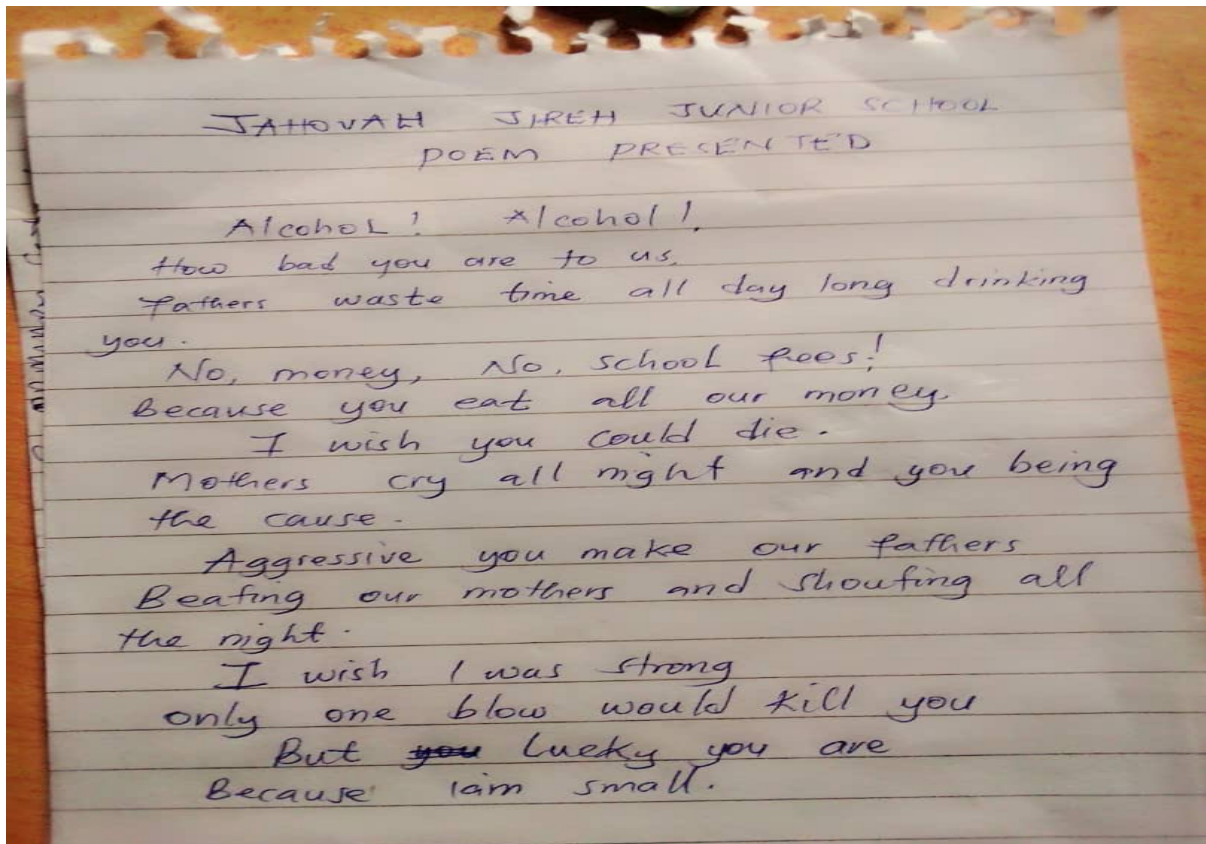 JAHOVAH JIREH JUNIOR SCHOOL
POEM PRESENTED
Alcohol! Alcohol!
How bad you are to us.
fathers waste time all day long drinking
you.
No, money, No, school fees!
Because you eat all our money.
I wish you could die.
Mothers cry all night and you being
the cause.
Aggressive you make our fathers
Beating our mothers and shouting all
the night.
I wish I was strong
only one blow would kill you
But you lucky you are
Because Iam small.